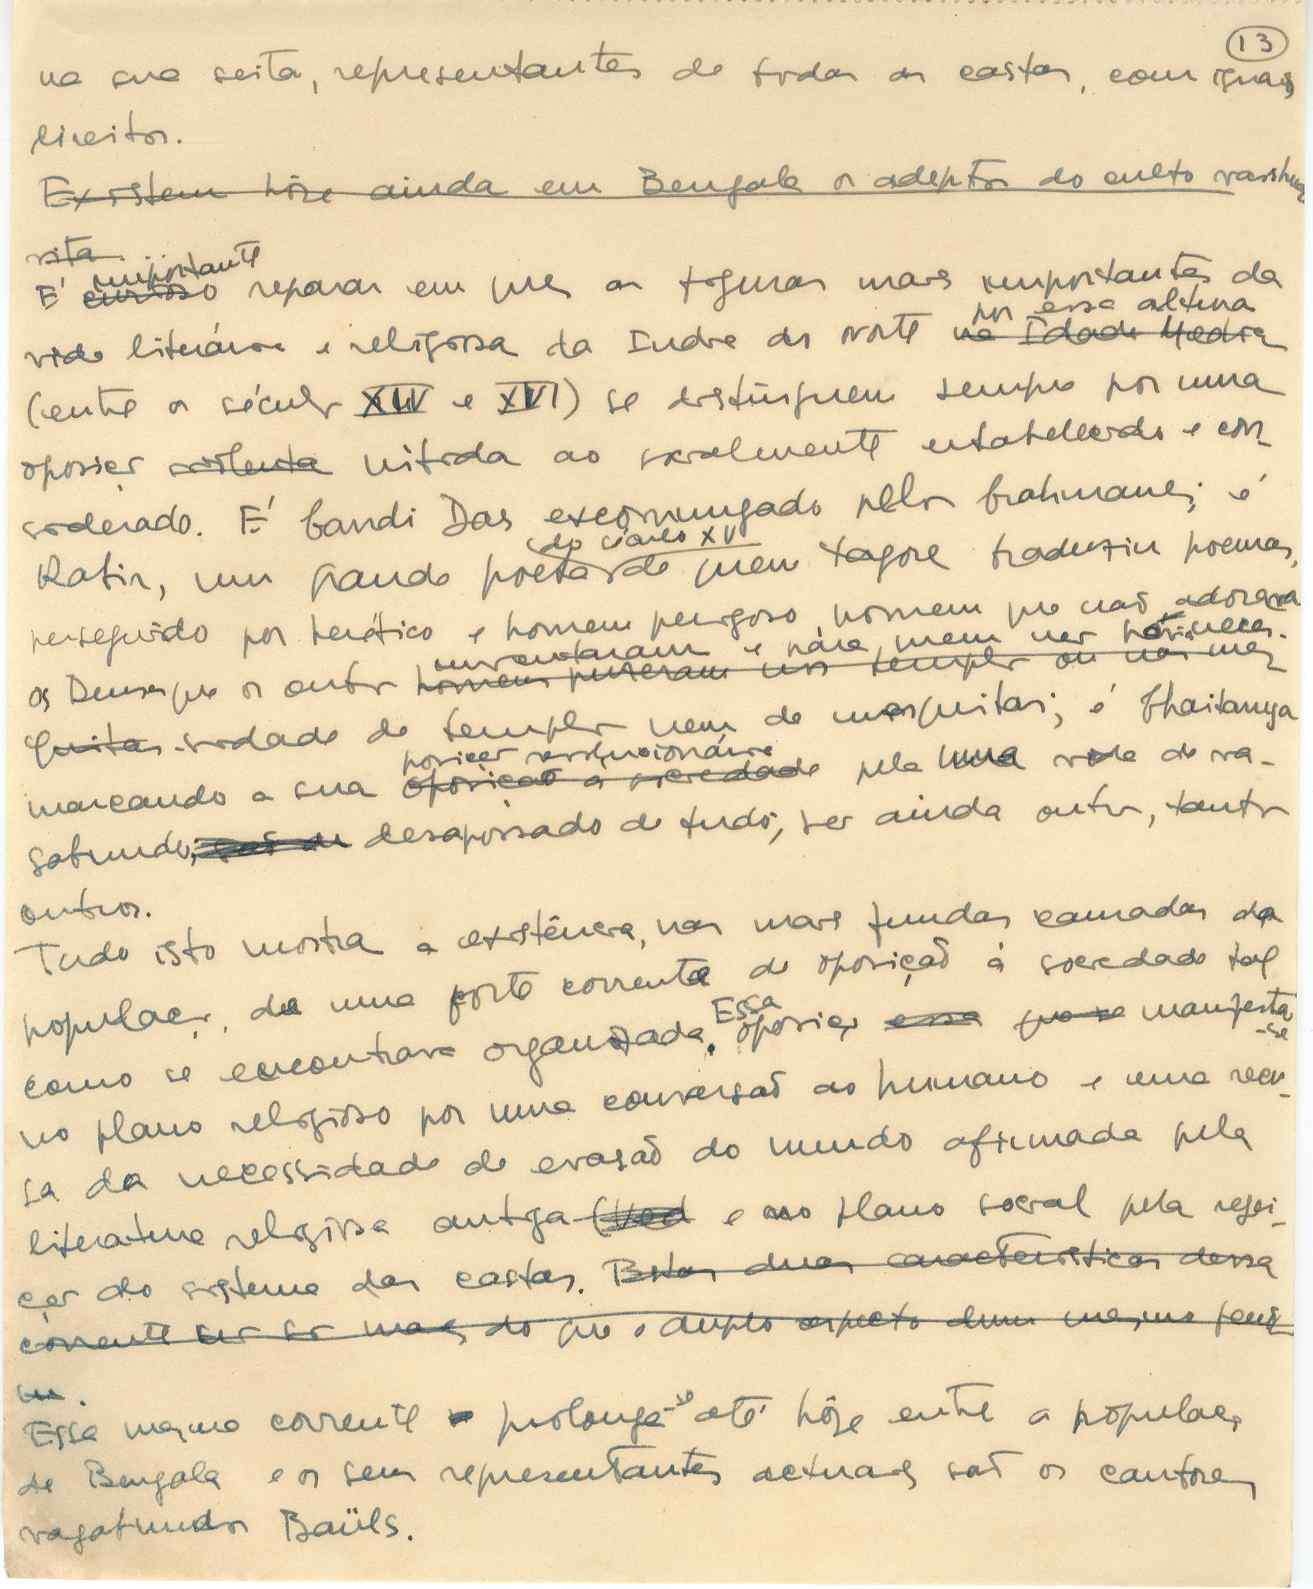 13
na sua seita, representantes de todas as castas, com iguais
direitos.
Existem hôje ainda em Bengala os adeptos do culto vaishna
vita.
importante
E' curioso reparar em que as figuras mais importantes da
por essa altura
vida literária e religiosa da India do Norte na Idade Media
(entre os séculos XIV e XVI) se distinguem sempre por uma
oposição violenta nitida ao socialmente estabelecido e con
siderado. E' Chandi Das excomungado pelos brahmanes; é
do século XV
Kabir, um grande poeta de quem Tagore traduziu poemas,
perseguido por herético e homem perigoso, homem que não adorava
inventaram e para quem não havia neces-
os Deuses que os outros homens puseram nos templos ou nas mes
quitas sidade de templos nem de mesquitas; é Chaitanya
posição revolucionária
marcando a sua oposição à sociedade pela uma vida de va-
gabundo, desapossado de tudo; são ainda outros, tantos
outros.
Tudo isto mostra a existência, nas mais fundas camadas da
população, da uma forte corrente de oposição à sociedade tal
Essa
como se encontrava organizada. oposição essa que se manifesta
-se
no plano religioso por uma conversão ao humano e uma recu-
sa da necessidade de evasão do mundo afirmada pela
literatura religiosa antiga (Ved e no plano social pela rejei-
ção do sistema das castas. Estas duas características dessa
corrente são só mais do que o duplo aspecto dum mesmo fenó
me.
-se
Essa mesma corrente prolonga até hôje entre a população
de Bengala e os seus representantes actuais são os cantores
vagabundos Baüls.